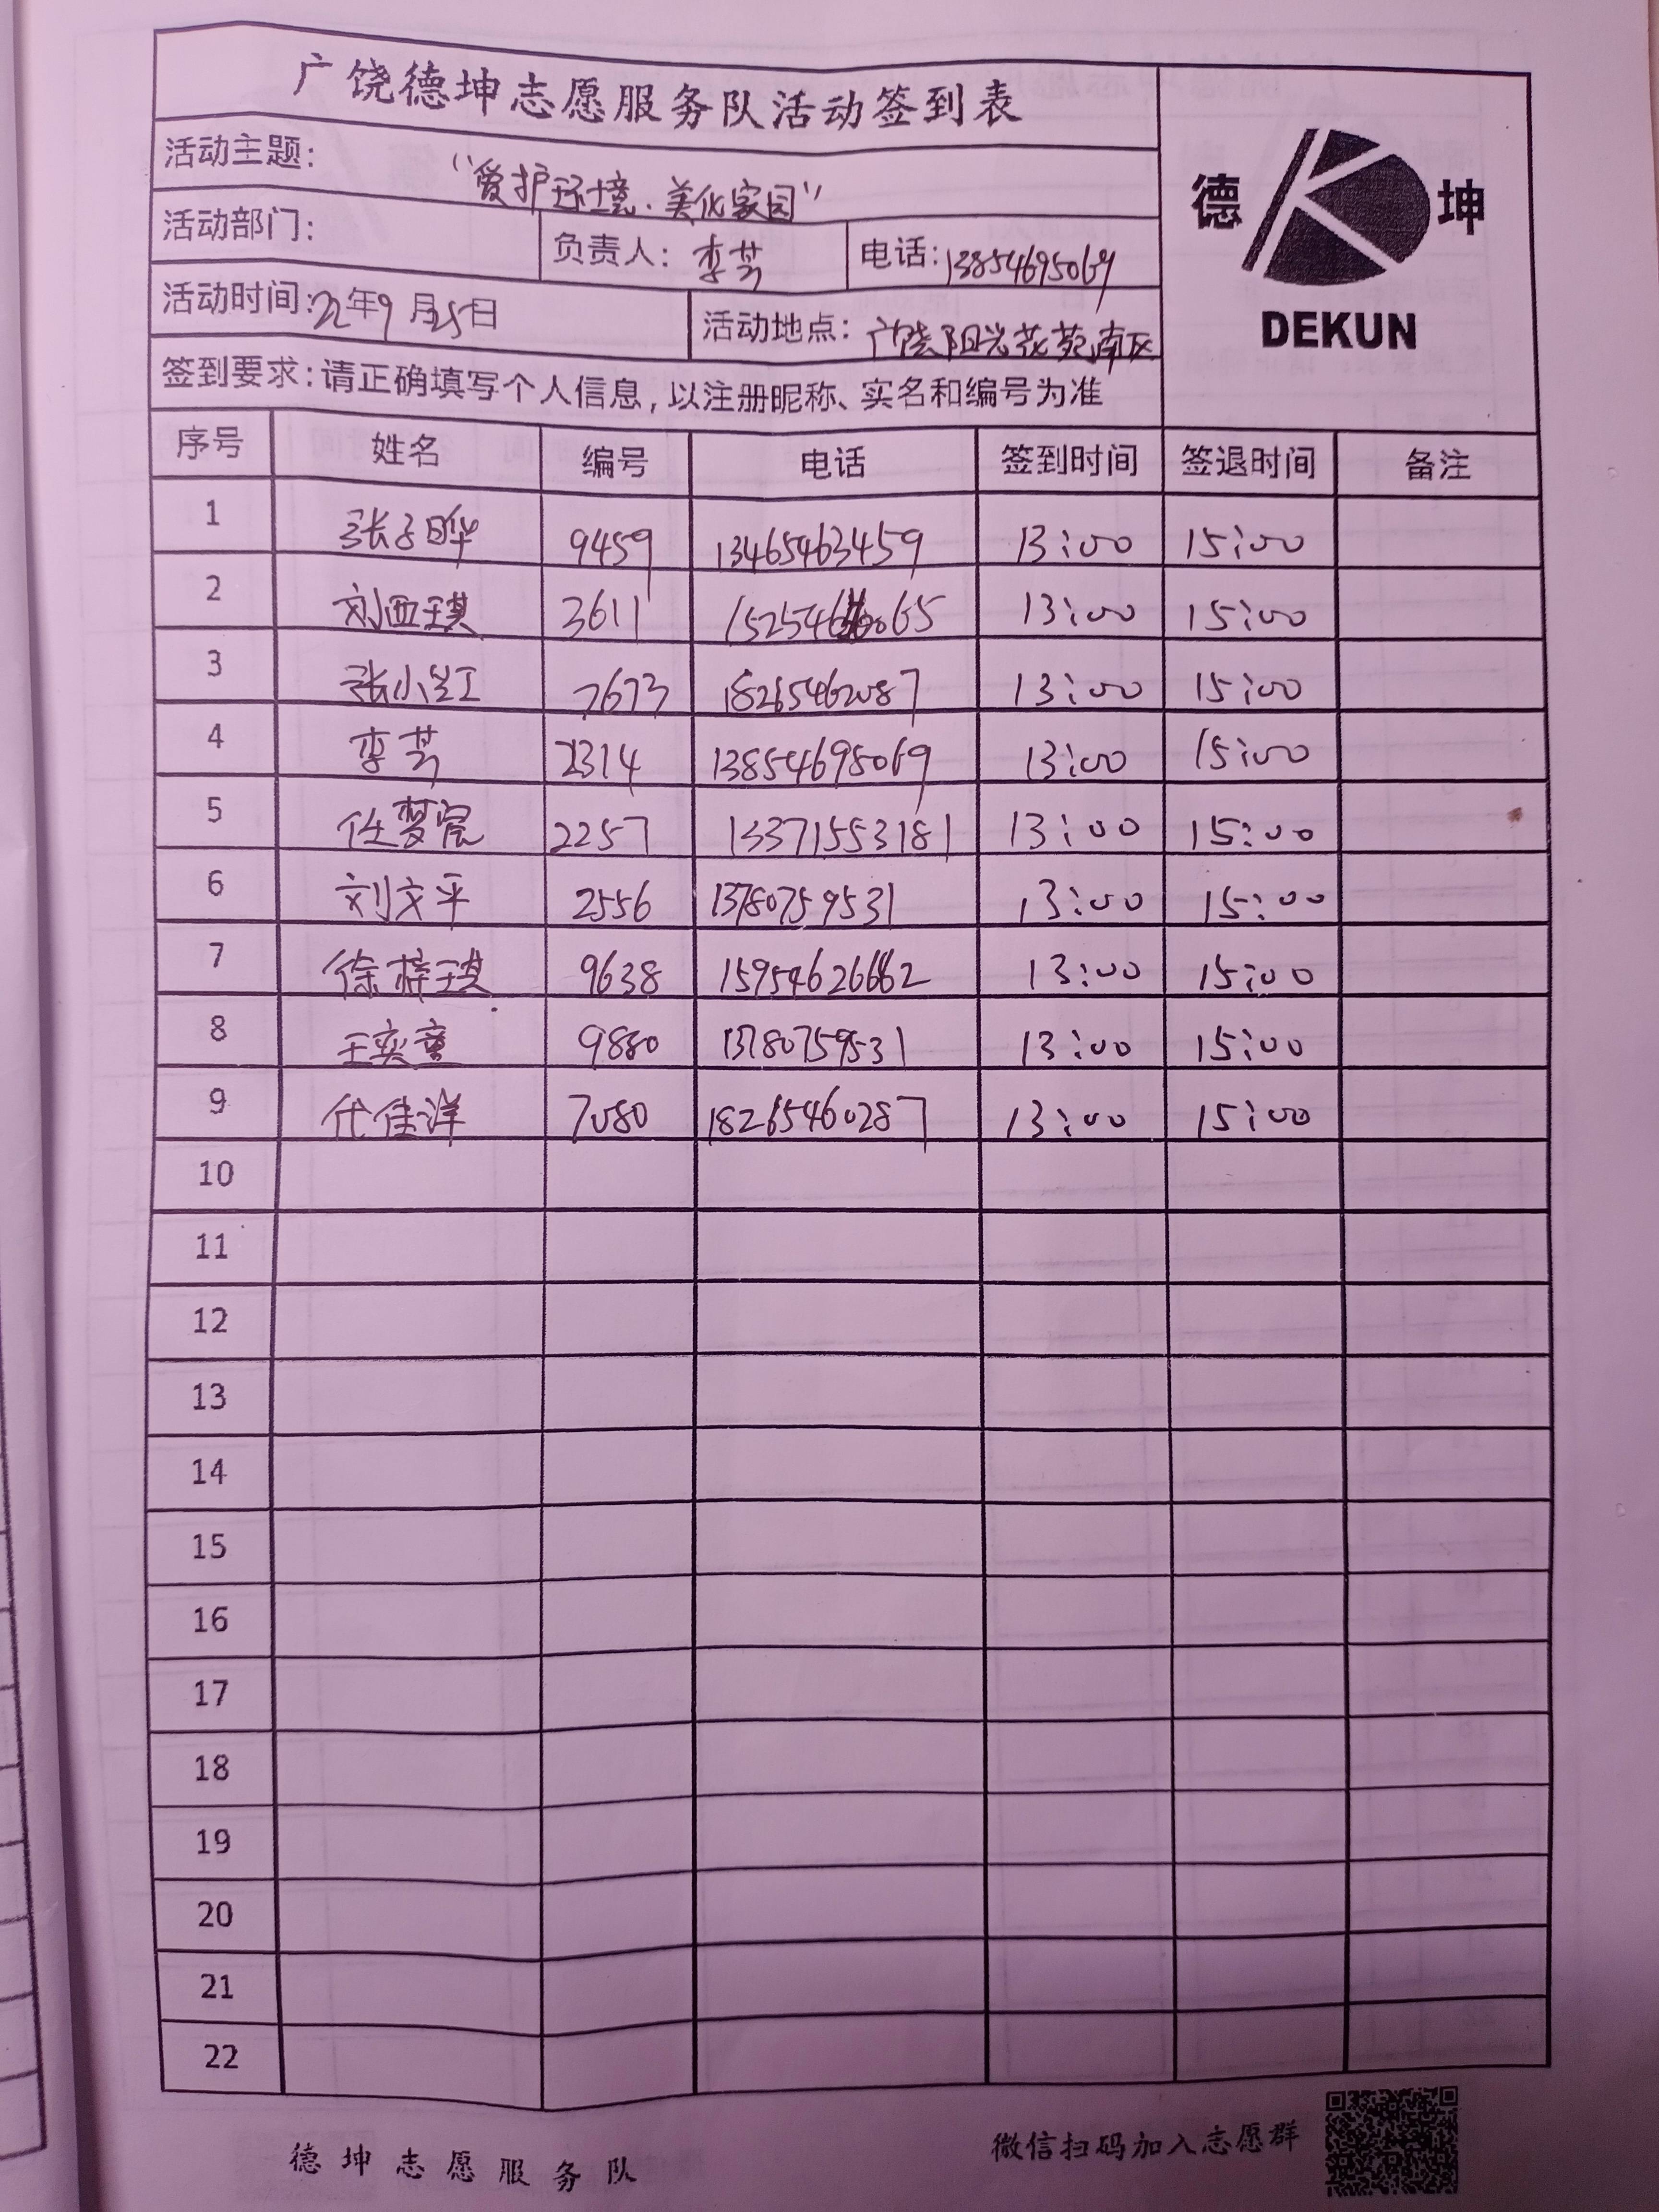 广饶德坤志愿服务队活动签到表
活动主题: "爱护环境.美化家园"
德 坤
DEKUN
活动部门: 负责人: 李芸 电话: 13854695069
活动时间: 22年9月25日 活动地点: 广饶阳光花苑南区
签到要求: 请正确填写个人信息, 以注册昵称、实名和编号为准
序号 姓名 编号 电话 签到时间 签退时间 备注
1 张子晔 9459 13465463459 13:00 15:00
2 刘西琪 3611 13:00 15:00
3 张小红 7673 18265462087 13:00 15:00
4 李芸 2314 13854695069 13:00 15:00
5 任梦宸 2257 13371553181 13:00 15:00
6 刘文平 2556 13780759531 13:00 15:00
7 徐梓琪 9638 15954626662 13:00 15:00
8 王奕童 9880 13780759531 13:00 15:00
9 代佳洋 7080 18265460287 13:00 15:00
10
11
12
13
14
15
16
17
18
19
20
21
22
德坤志愿服务队
微信扫码加入志愿群